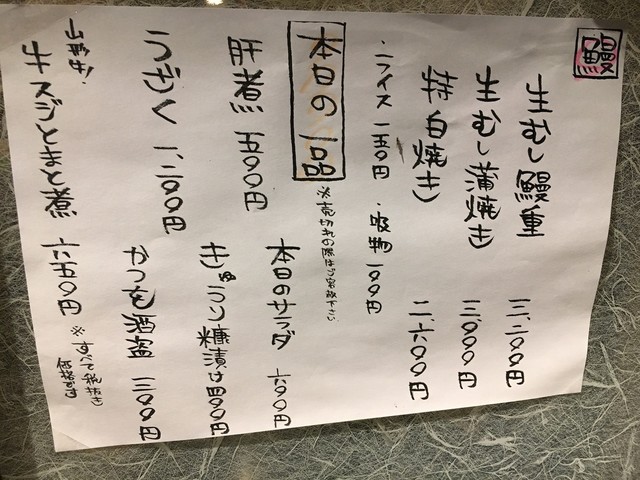 鰻
生むし鰻重 三、二〇〇円
生むし蒲焼き 三、〇〇〇円
特白焼き 二、六〇〇円
・ライス 一五〇円 ・吸物 一〇〇円
本日の一品
※売切れの際はご容赦下さい
肝煮 五〇〇円
本日のサラダ 六〇〇円
うざく 一、二〇〇円
きゅうり糠漬け 四〇〇円
かつを酒盗 三〇〇円
山形牛!
牛スジとまと煮 六五〇円
※すべて税抜き
価格です